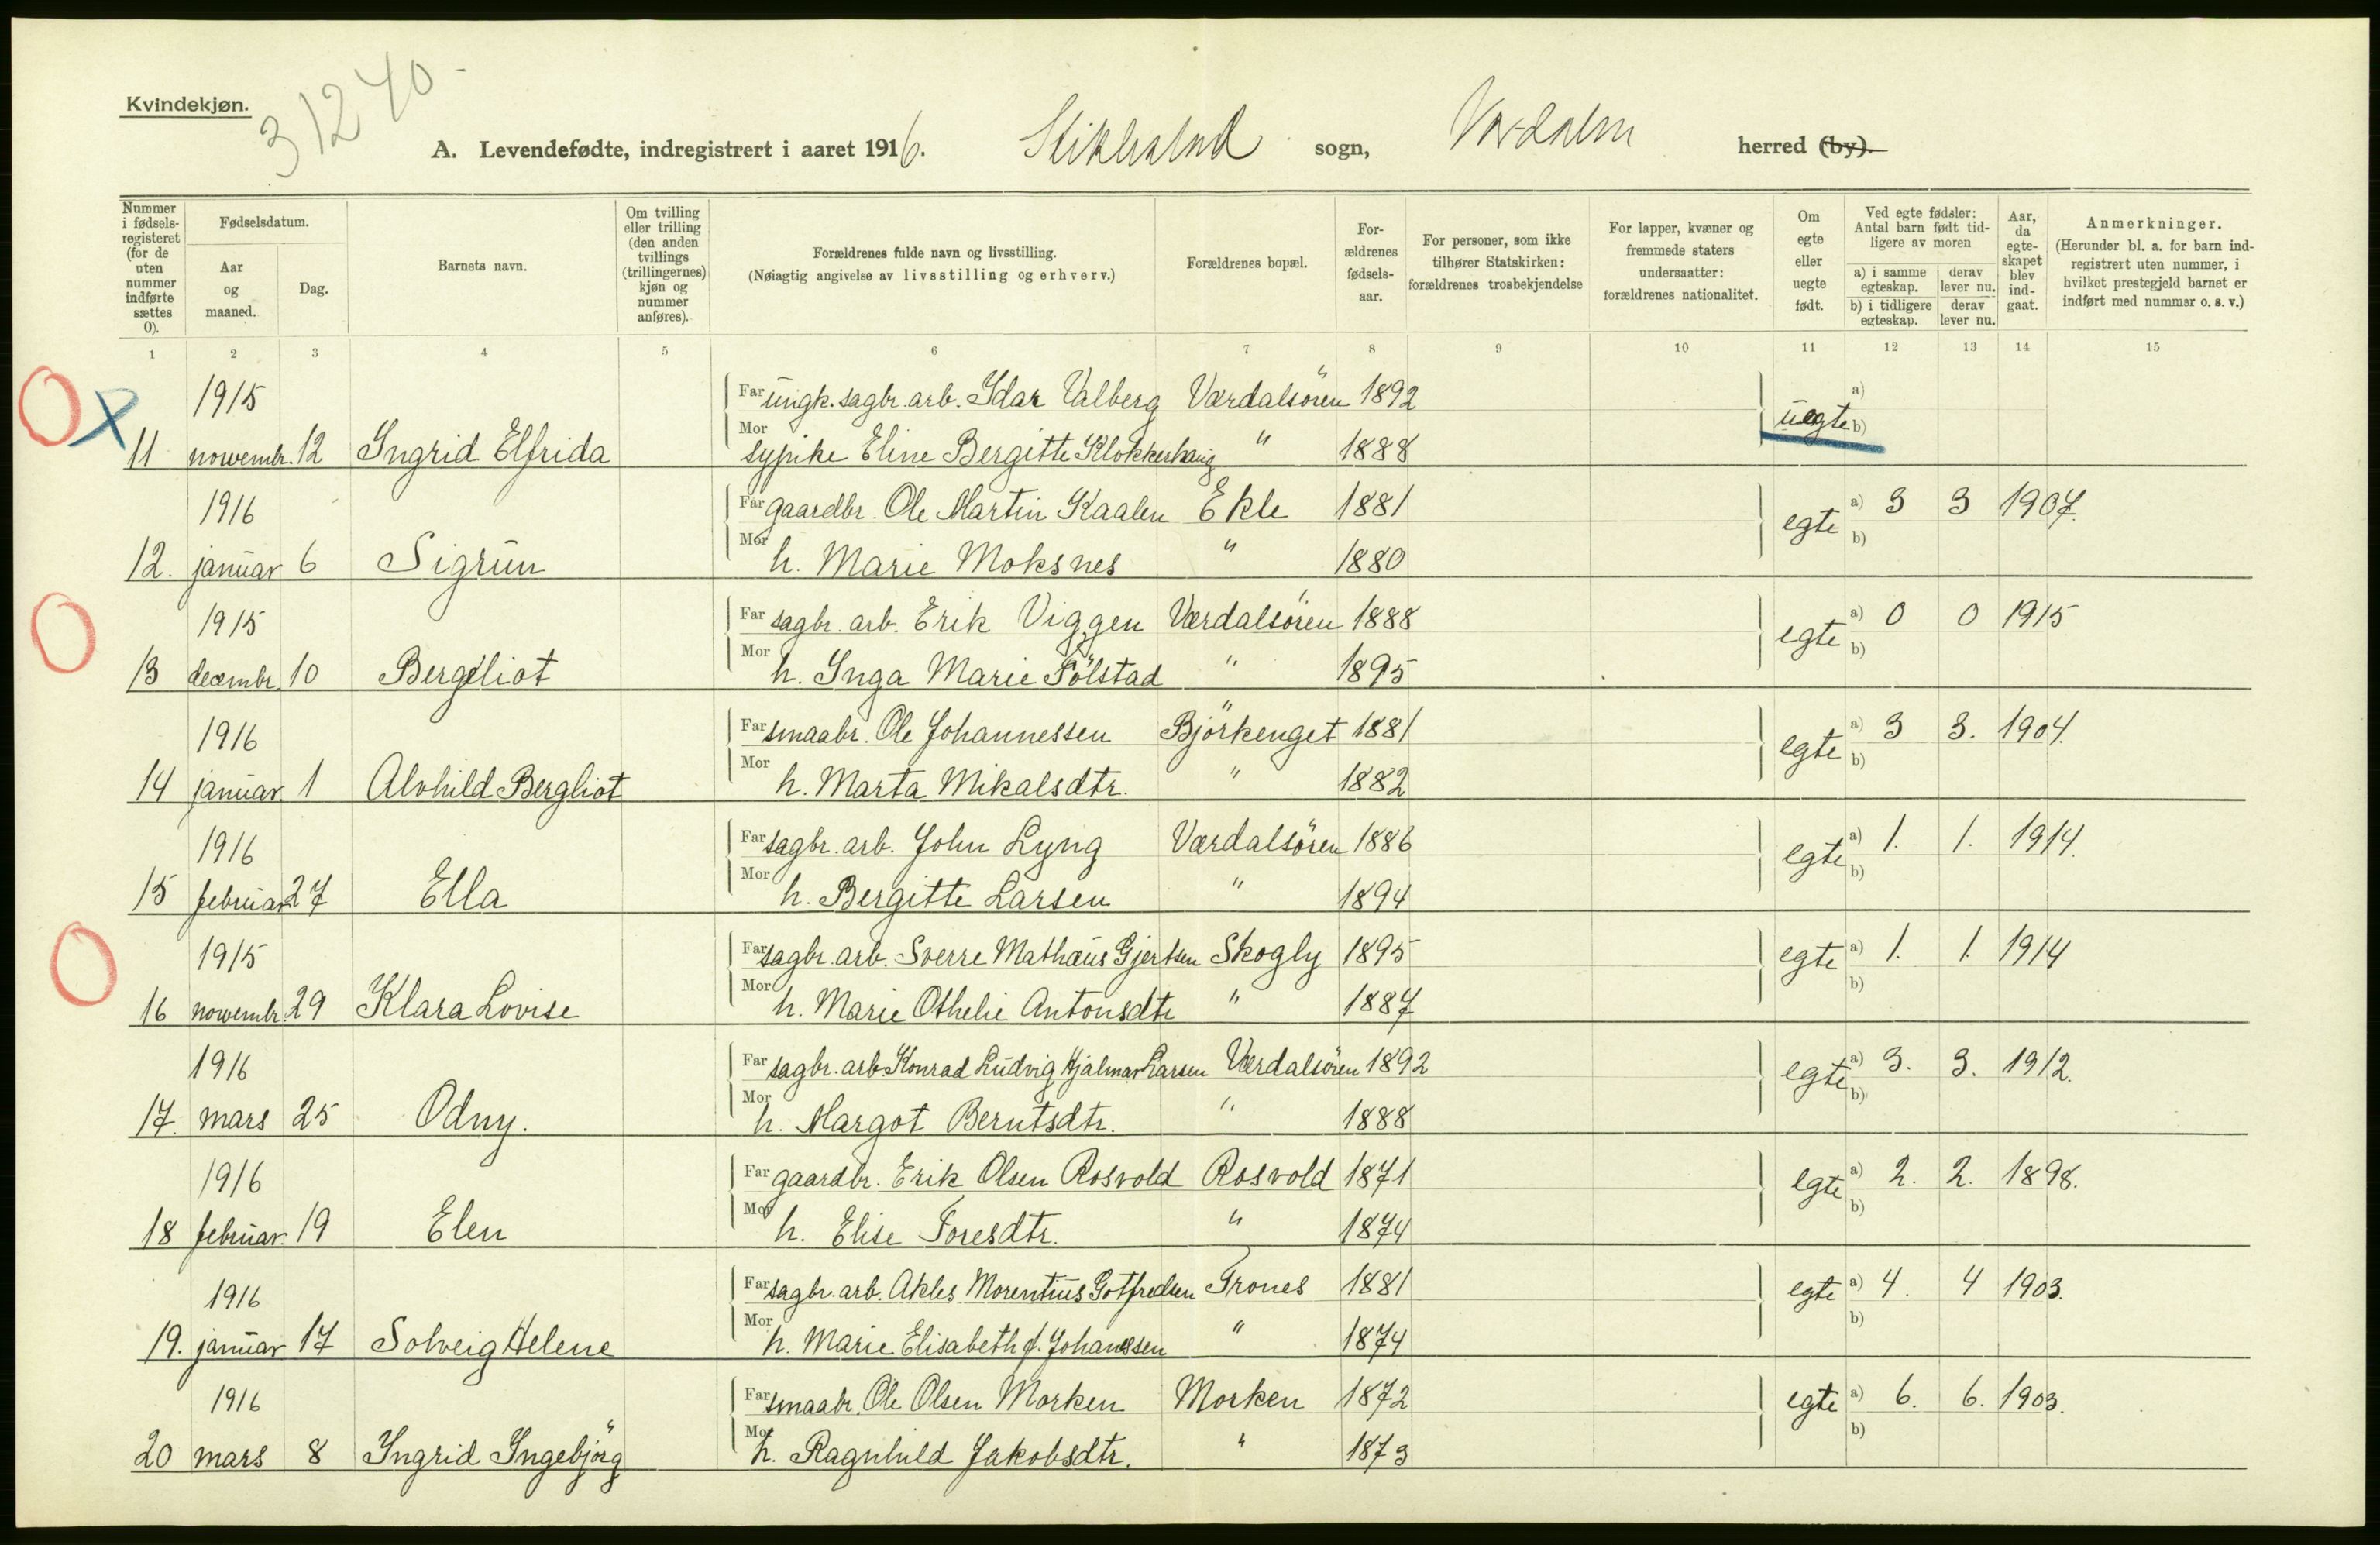 Kvindekjøn.
31240-
A. Levendefødte, indregistrert i aaret 1916. Stiklestad sogn, Værdalen herred (by).
Nummer i fødsels-registeret (for de uten nummer indførte sættes 0).
Fødselsdatum.
Aar og maaned.
Dag.
Barnets navn.
Om tvilling eller trilling (den anden tvillings (trillingernes) kjøn og nummer anføres).
Forældrenes fulde navn og livsstilling.
(Nøiagtig angivelse av livsstilling og erhverv.)
Forældrenes bopæl.
For-ældrenes fødsels-aar.
For personer, som ikke tilhører Statskirken: forældrenes trosbekjendelse
For lapper, kvæner og fremmede staters undersaatter: forældrenes nationalitet.
Om egte eller uegte født.
Ved egte fødsler: Antal barn født tid-ligere av moren
a) i samme egteskap. derav lever nu.
b) i tidligere egteskap. derav lever nu.
Aar, da egte-skapet blev ind-gaat.
Anmerkninger.
(Herunder bl. a. for barn ind-registrert uten nummer, i hvilket prestegjeld barnet er indført med nummer o. s. v.)
1 2 3 4 5 6 7 8 9 10 11 12 13 14 15
1915 Far ungk. sagbr. arb. Idar Valberg Værdalsören 1892 a)
11 nowembr. 12 Ingrid Elfrida Mor sypike Eline Bergitte Klokkerhaug " 1888 uegte b)
1916 Far gaardbr. Ole Martin Kaalen Ekle 1881 a) 3 3 1907.
12. januar 6 Sigrun Mor h. Marie Moksnes " 1880 egte b)
1915 Far sagbr. arb. Erik Viggen Værdalsören 1888 a) 0 0 1915
13 decembr. 10 Bergeliot Mor h. Inga Marie Sölstad " 1895 egte b)
1916 Far smaabr. Ole Johannessen Björkenget 1881 a) 3 3. 1904.
14 januar. 1 Alvhild Bergliot Mor h. Marta Mikalsdtr. " 1882 egte b)
1916 Far sagbr. arb. John Lyng Værdalsören 1886 a) 1. 1. 1914.
15 februar 27 Ella Mor h. Bergitte Larsen " 1894 egte b)
1915 Far sagbr. arb. Sverre Mathæus Gjertsen Skogly 1895 egte a) 1. 1. 1914
16 nowembr. 29 Klara Lovise Mor h. Marie Othelie Antonsdtr " 1887 b)
1916 Far sagbr. arb. Konrad Ludvig Hjalmar Larsen Værdalsören 1892 a) 3. 3. 1912.
17. mars 25 Odny. Mor h. Margot Berntsdtr. " 1888 egte b)
1916 Far gaardbr. Erik Olsen Rosvold Rosvold 1871 a) 2. 2. 1898.
18 februar. 19 Elen Mor h. Elise Toresdtr. " 1874 egte b)
1916 Far sagbr. arb. Akles Morentius Gotfredsen Trones 1881 egte a) 4. 4 1903.
19. januar 17 Solveig Helene Mor h. Marie Elisabeth f. Johanssen " 1874 b)
1916 Far smaabr. Ole Olsen Morken Morken 1872 egte a) 6. 6. 1903.
20 mars 8 Ingrid Ingebjörg Mor h. Ragnhild Jakobsdtr. " 1873 b)